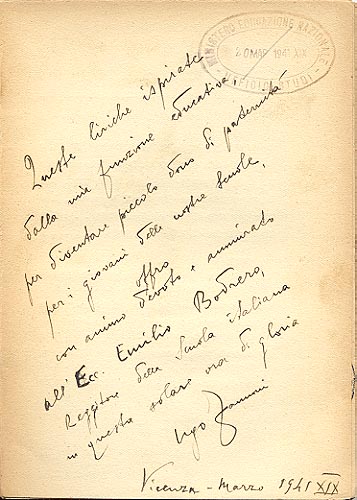 MINISTERO EDUCAZIONE NAZIONALE
20 MAR 1941 XIX
UFFICIO STUDI
Queste liriche ispirate
dalla mia funzione educativa
per diventare piccolo dono di paternità
per i giovani delle nostre Scuole,
offro
con animo devoto e ammirato
all'Ecc. Emilio Bodrero,
Reggitore della Scuola italiana
in questa solare ora di gloria
Ugo
Vicenza - Marzo 1941 XIX